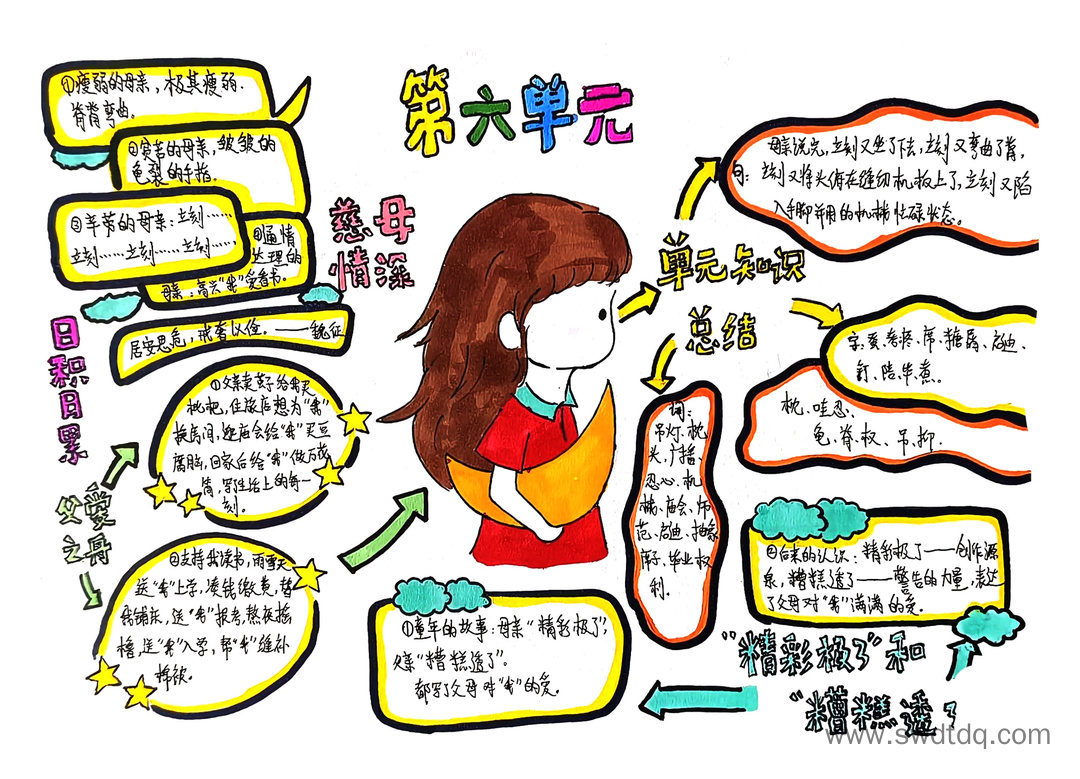 第六单元
①瘦弱的母亲，极其瘦弱.
脊背弯曲。
②贫苦的母亲，皱皱的
龟裂的手指。
③辛劳的母亲：立刻……
立刻……立刻……立刻……
④通情
达理的
母亲：高兴“我”爱看书。
慈母
情深
日积月累
居安思危，戒奢以俭。——魏征
①父亲卖草子给我买
枇杷，住旅店想为“我”
换房间，逛庙会给“我”买豆
腐脑，回家后给“我”做万花
筒，写生活上的每一
刻。
父爱
之舟
②支持我读书，雨雪天
送“我”上学，凑钱缴费，替
我铺床，送“我”报考，熬夜摇
橹，送“我”入学，帮“我”缝补
棉被。
单元知识
母亲说完，立刻又坐了下去，立刻又弯曲了背，
句：立刻又将头俯在缝纫机板上了，立刻又陷
入手脚并用的机械忙碌状态。
总结
词：
吊灯、枕
头、广播、
忍心、机
械、庙会、师
范、启迪、抽象
毕业、权
利。
启迪、
钉、陪、毕、煮。
枕、哇、忍、
龟、脊、权、吊、抑.
“精彩极了”和
“糟糕透了
①童年的故事：母亲“精彩极了”，
父亲“糟糕透了”。
都写了父母对“我”的爱。
②后来的认识：精彩极了——创作源
泉，糟糕透了——警告的力量，表达
了父母对“我”满满的爱。
www.swdtdq.com